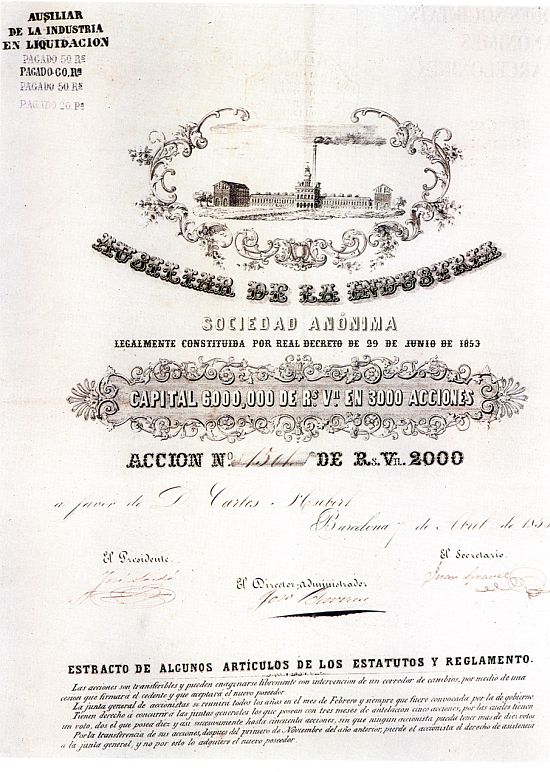 AUSILIAR
DE LA INDUSTRIA
EN LIQUIDACION
PAGADO 50 Rs
PAGADO 60.Rs
PAGADO 50 Rs
PAGADO 20.Rs
AUSILIAR DE LA INDUSTRIA
SOCIEDAD ANÓNIMA
LEGALMENTE CONSTITUIDA POR REAL DECRETO DE 29 DE JUNIO DE 1853
CAPITAL 6000,000 DE Rs Vn EN 3000 ACCIONES
ACCION No. 1501 DE Rs. Vn. 2000
a favor de D. Carlos Hubert
Barcelona 7 de Abril de
El Presidente.
El Secretario.
El Director Administrador
ESTRACTO DE ALGUNOS ARTÍCULOS DE LOS ESTATUTOS Y REGLAMENTO.
Las acciones son transferibles y pueden enagenarse libremente con intervencion de un corredor de cambios, por medio de una
cesion que firmará el cedente y que aceptará el nuevo poseedor.
La junta general de accionistas se reunirá todos los años en el mes de Febrero y siempre que fuere convocada por la de gobierno.
Tienen derecho á concurrir á las juntas generales los que posean con tres meses de antelacion cinco acciones, por las cuales tienen
un voto, dos el que posea diez y asi sucesivamente hasta cincuenta acciones, sin que ningun accionista pueda tener mas de diez votos
Por la transferencia de sus acciones, despues del primero de Noviembre del año anterior, pierde el accionista el derecho de asistencia
á la junta general, y no por esto lo adquiere el nuevo poseedor.